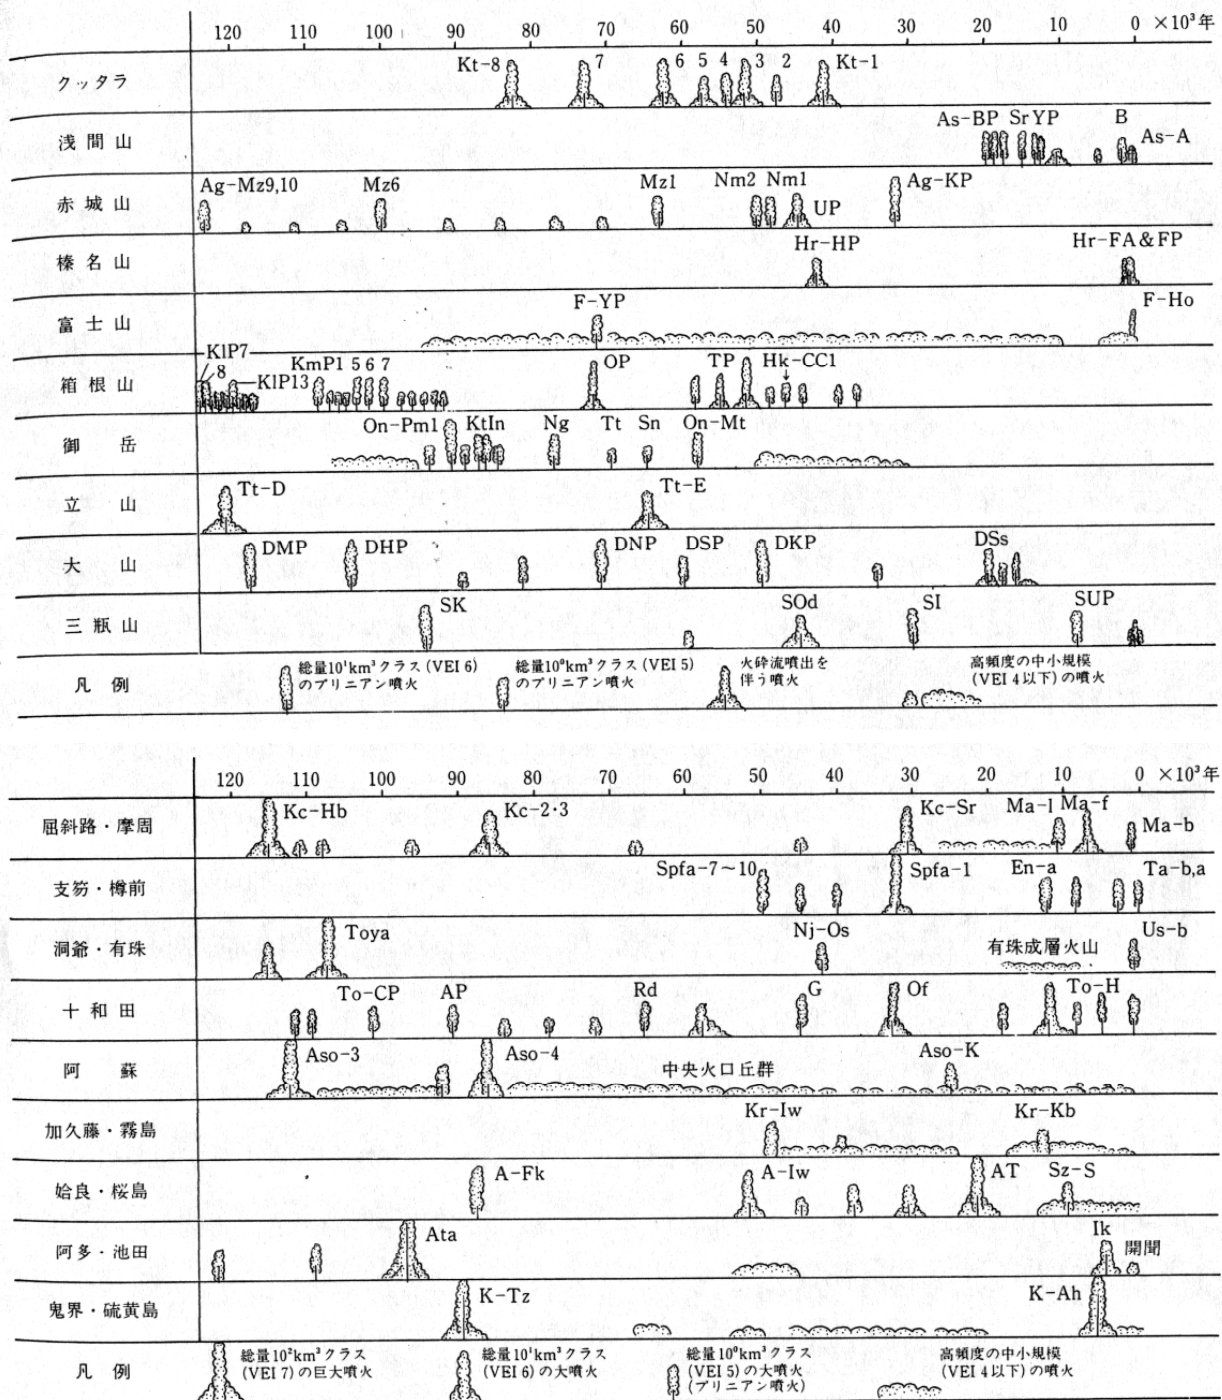 120 110 100 90 80 70 60 50 40 30 20 10 0 ×10³年
クッタラ Kt-8 7 6 5 4 3 2 Kt-1
浅間山 As-BP Sr YP B As-A
赤城山 Ag-Mz9,10 Mz6 Mz1 Nm2 Nm1 UP Ag-KP
榛名山 Hr-HP Hr-FA&FP
富士山 F-YP F-Ho
箱根山 KlP7 8 KlP13 KmP1 5 6 7 OP TP Hk-CC1
御岳 On-Pm1 KtIn Ng Tt Sn On-Mt
立山 Tt-D Tt-E
大山 DMP DHP DNP DSP DKP DSs
三瓶山 SK SOd SI SUP
凡例
総量10¹km³クラス(VEI 6)
のプリニアン噴火
総量10⁰km³クラス(VEI 5)
のプリニアン噴火
火砕流噴出を
伴う噴火
高頻度の中小規模
(VEI 4以下)の噴火
120 110 100 90 80 70 60 50 40 30 20 10 0 ×10³年
屈斜路・摩周 Kc-Hb Kc-2・3 Kc-Sr Ma-l Ma-f Ma-b
支笏・樽前 Spfa-7~10 Spfa-1 En-a Ta-b,a
洞爺・有珠 Toya Nj-Os 有珠成層火山 Us-b
十和田 To-CP AP Rd G Of To-H
阿蘇 Aso-3 Aso-4 中央火口丘群 Aso-K
加久藤・霧島 Kr-Iw Kr-Kb
姶良・桜島 A-Fk A-Iw AT Sz-S
阿多・池田 Ata Ik 開聞
鬼界・硫黄島 K-Tz K-Ah
凡例
総量10²km³クラス
(VEI 7)の巨大噴火
総量10¹km³クラス
(VEI 6)の大噴火
総量10⁰km³クラス
(VEI 5)の大噴火
(プリニアン噴火)
高頻度の中小規模
(VEI 4以下)の噴火